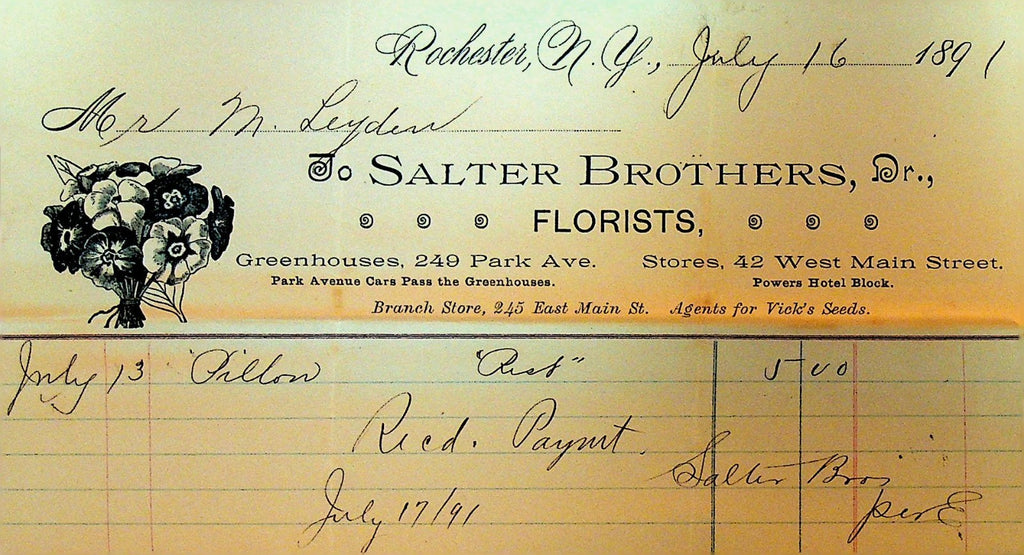 Rochester, N. Y., July 16 1891
Mr M. Leyden
To SALTER BROTHERS, Dr.,
FLORISTS,
Greenhouses, 249 Park Ave. Stores, 42 West Main Street.
Park Avenue Cars Pass the Greenhouses. Powers Hotel Block.
Branch Store, 245 East Main St. Agents for Vick's Seeds.
July 13 Pillow "Rest" 5 00
Recd. Paymt.
Salter Bros
July 17/91 per E